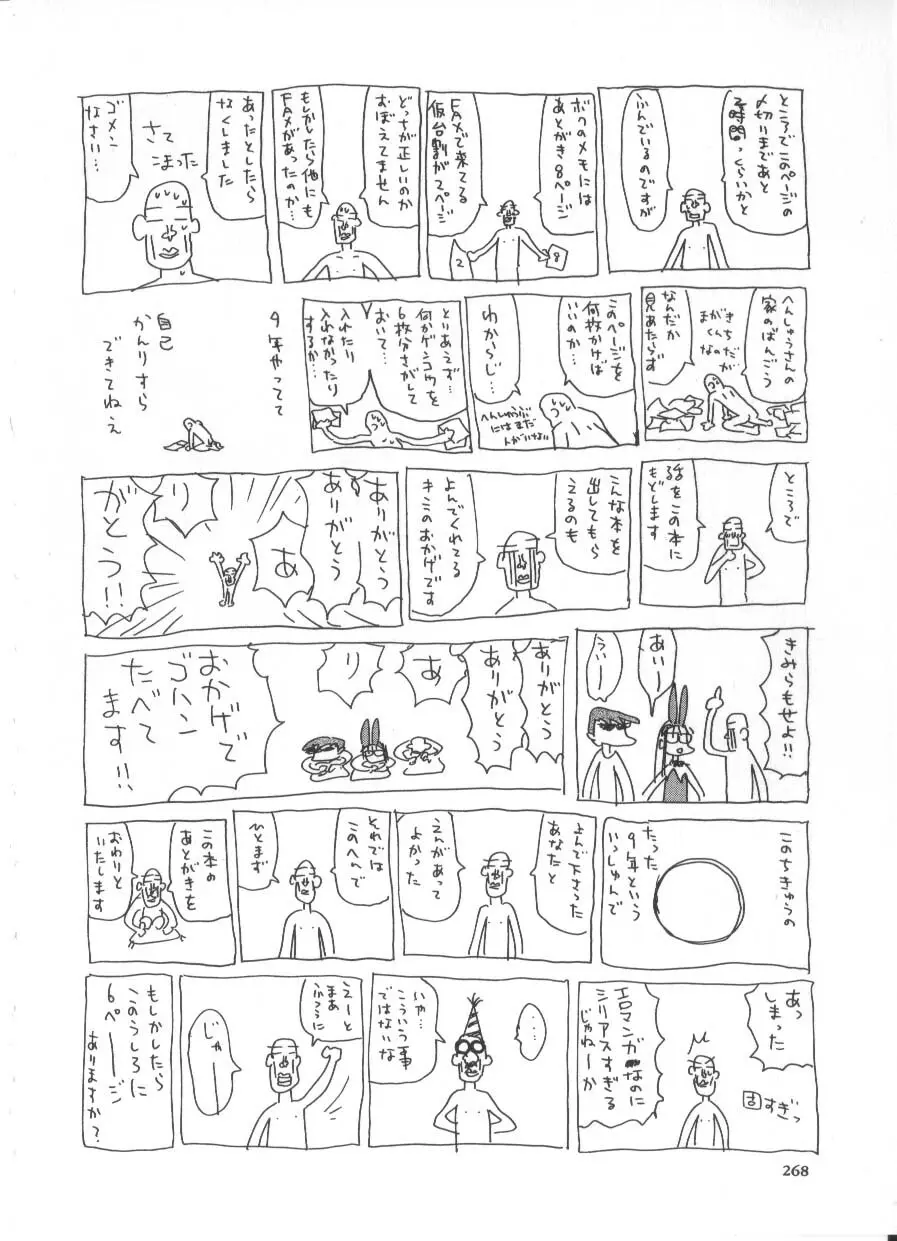 ところでこのページの
〆切りまであと
2時間っくらいかと
ふんでいるのですが
ボクのメモには
あとがき8ページ
FAXで来てる
仮台割が2ページ
8
2
どっちが正しいのか
おぼえてません
もしかしたら他にも
FAXがあったのか…
あったとしたら
なくしました
さて
こまった
ゴメン
なさい…
へんしゅうさんの
家のばんごう
きちだが
まがくんなの
なんだか
見あたらず
このページを
何枚かけば
いいのか…
わからじ…
へんしゅうぶ
にはまだ
人がいない
とりあえず…
何かゲンコウを
6枚分さがして
おいて…
入れたり
入れなかったり
するか…
9年やってて
自己
かんりすら
できてねえ
ところで
話をこの本に
もどします
こんな本を
出してもら
えるのも
よんでくれてる
キミのおかげです
ありがとう
ありがとう
あ
り
がとう!!
きみらもせよ!!
あいー
うぃー
ありがとう
ありがとう
あ
り
おかげで
ゴハン
たべて
ます!!
このちきゅうの
たった
9年という
いっしゅんで
よんで下さった
あなたと
えんがあって
よかった
それでは
このへんで
ひとまず
この本の
あとがきを
おわりと
いたします
あっ
しまった
古すぎっ
エロマンガなのに
シリアスすぎる
じゃねーか
……
いや…
こういう事
ではないな
えーと
まあ
ふつうに
じゃ
もしかしたら
このうしろに
6ページ
ありますか?
268